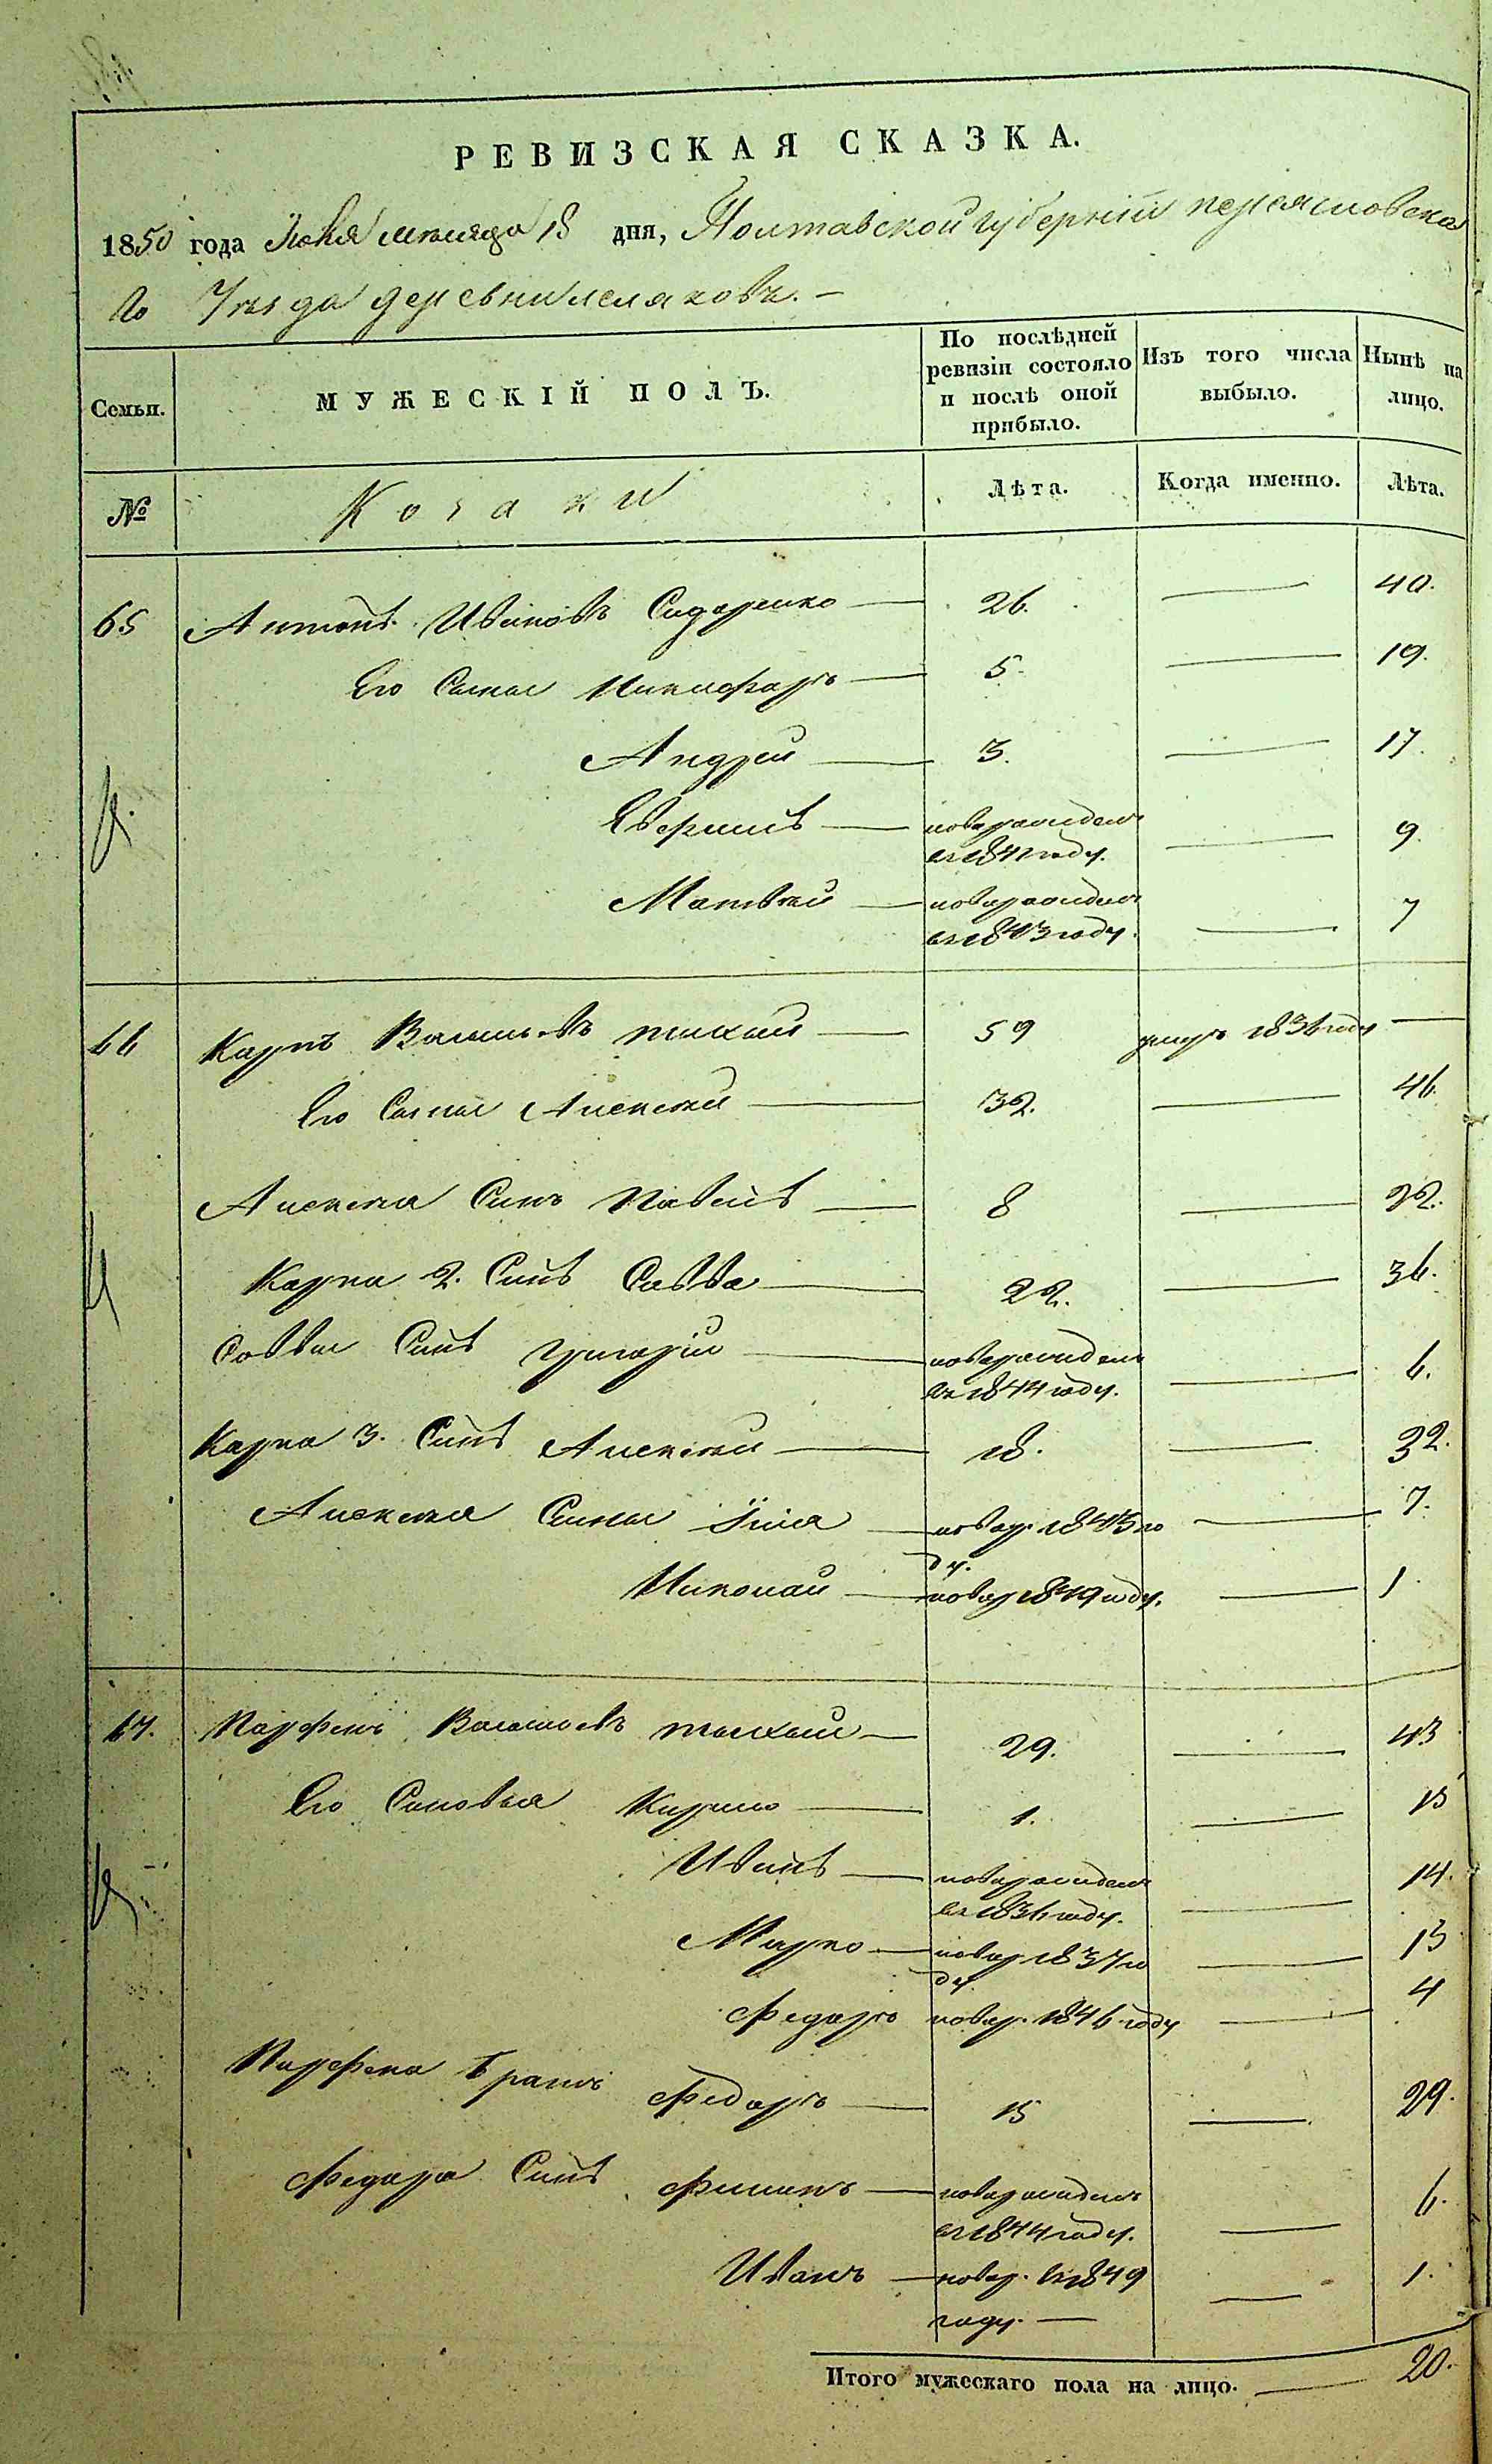 РЕВИЗСКАЯ СКАЗКА.
1850 года Июня месяца 18 дня, Полтавской губерніи переясловска
го Уезда деревни леляковъ.
Семьи. МУЖЕСКІЙ ПОЛЪ. По послѣдней ревизіи состояло и послѣ оной прибыло. Изъ того числа выбыло. Нынѣ на лицо.
№ Козаки Лѣта. Когда именно. Лѣта.
65 Антонъ Ивановъ Сидоренко 26. 40.
Его Сыны Никифоръ 5. 19.
Андрей 3. 17.
новорожденъ 9.
въ 1841 году.
Матвей новорожденъ 7
въ 1843 году.
66 Карпъ Васильевъ 59 умеръ 1836 году
Его Сыны Алексей 32. 46.
Алексея Синъ Павелъ 8 22.
Карпа 2. Синъ Савва 22. 36.
Саввы Синъ Григорій новорожденъ 6.
въ 1844 году.
Карпа 3. Синъ Алексей 18. 32.
Алексея Сыны Илія новор. 1843 го 7.
ду.
Николай новор 1849 году. 1
67. Парфенъ Васильевъ 29. 43
Его Синовья Кирило 1. 15
Иванъ новорожденъ 14.
въ 1836 году.
Марко новор 1837 го 13
ду
Федоръ новор. 1846 году 4
Парфена братъ Федоръ 15 29.
Федора Синъ Филипъ новорожденъ 6.
въ 1844 году.
Иванъ новор. въ 1849 1.
году.
Итого мужескаго пола на лицо. 20.